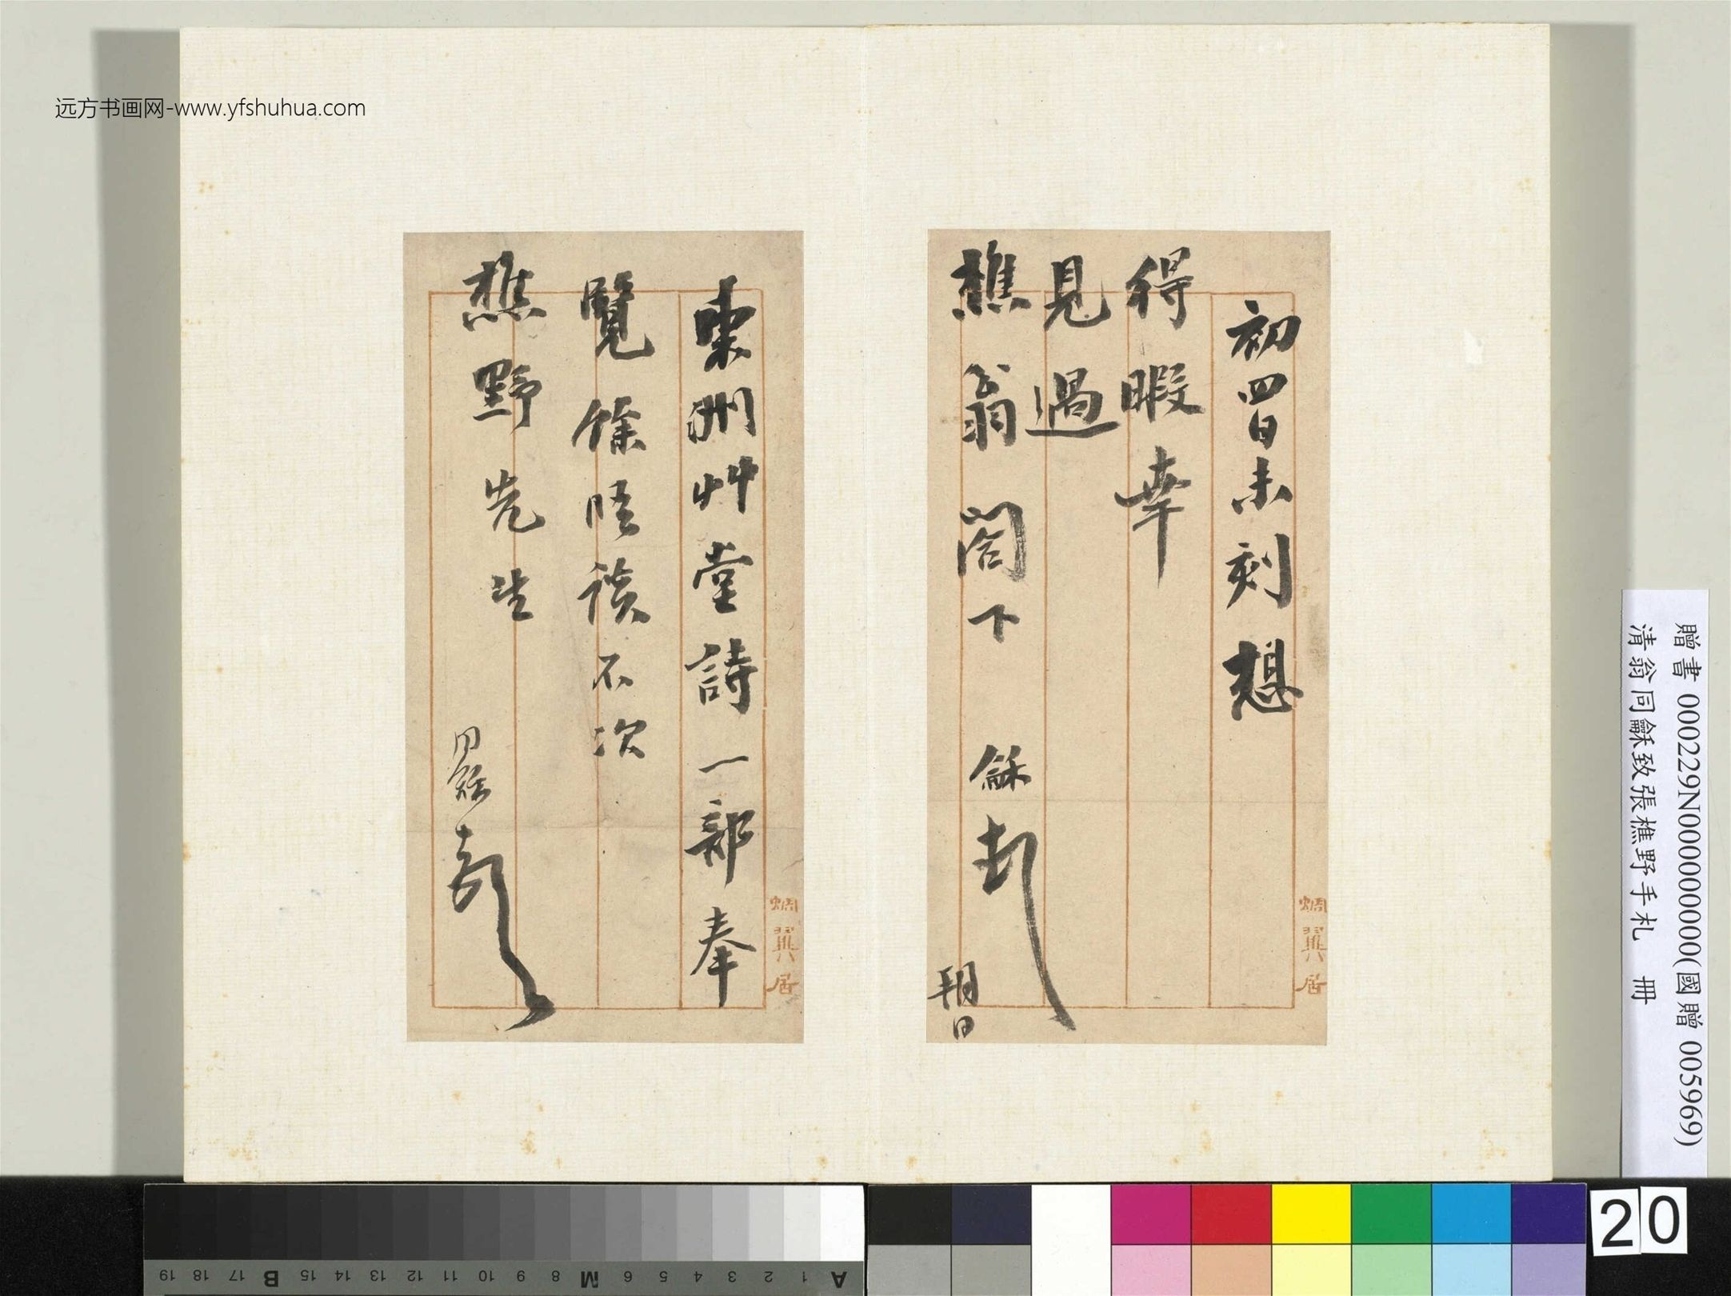 远方书画网-www.yfshuhua.com
初四日未刻想
得暇幸
見過
樵翁閣下 龢頓
朔日
蜩翼居
東洲艸堂詩一部奉
覽餘晤談不次
樵野先生
蜩翼居
贈書 000229N000000000(國贈 005969)
清翁同龢致張樵野手札 冊
19 18 17 B 16 15 14 13 12 11 10 9 8 M 7 6 5 4 3 2 1 A
20